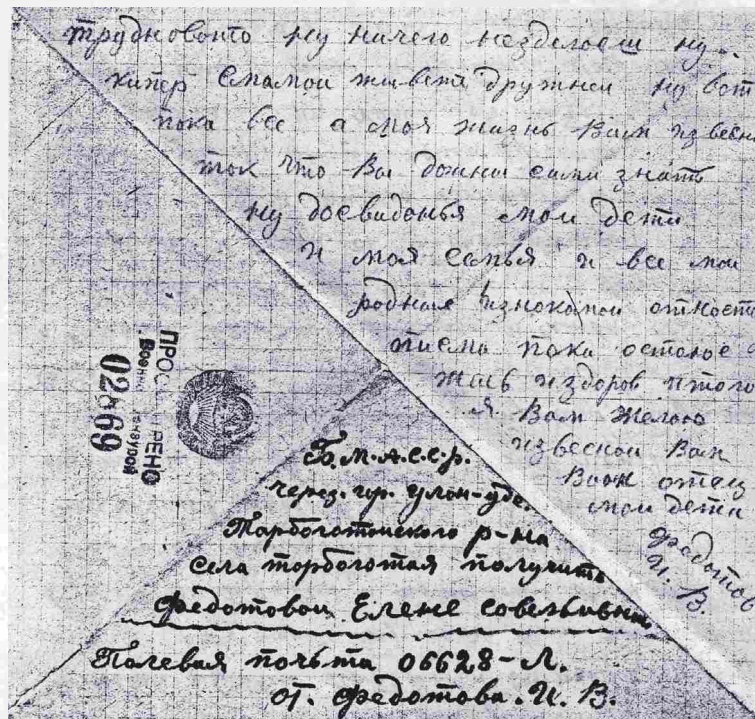 трудновоито ну ничего незделоеш ну..
хитер смамои живети дружнеи ну вот
пока все а моя жизнь Вам известн
ток что Вы должны сами знать
ну досвиданья мои дети
и моя семья и все мои
родные изнокомои
писма пока остоюс
жив издоров итого
я Вам желою
известнои Вам
Ваш отец
мои дети
Федотов
И. В.
ПРОС РЕНО
Военн цензурой
02869
Б.М.А.С.С.р.
через. гор. Улон-уде.
Тарбоготоиского р-на
села торбототая получить
Федотовои Елене совельивни
Полевая почьта 06628-Л.
от. Федотова. И. В.